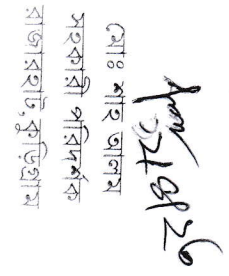 মোঃ শাহ আলম
সহকারী পরিদর্শক
রাজারহাট, কুড়িগ্রাম